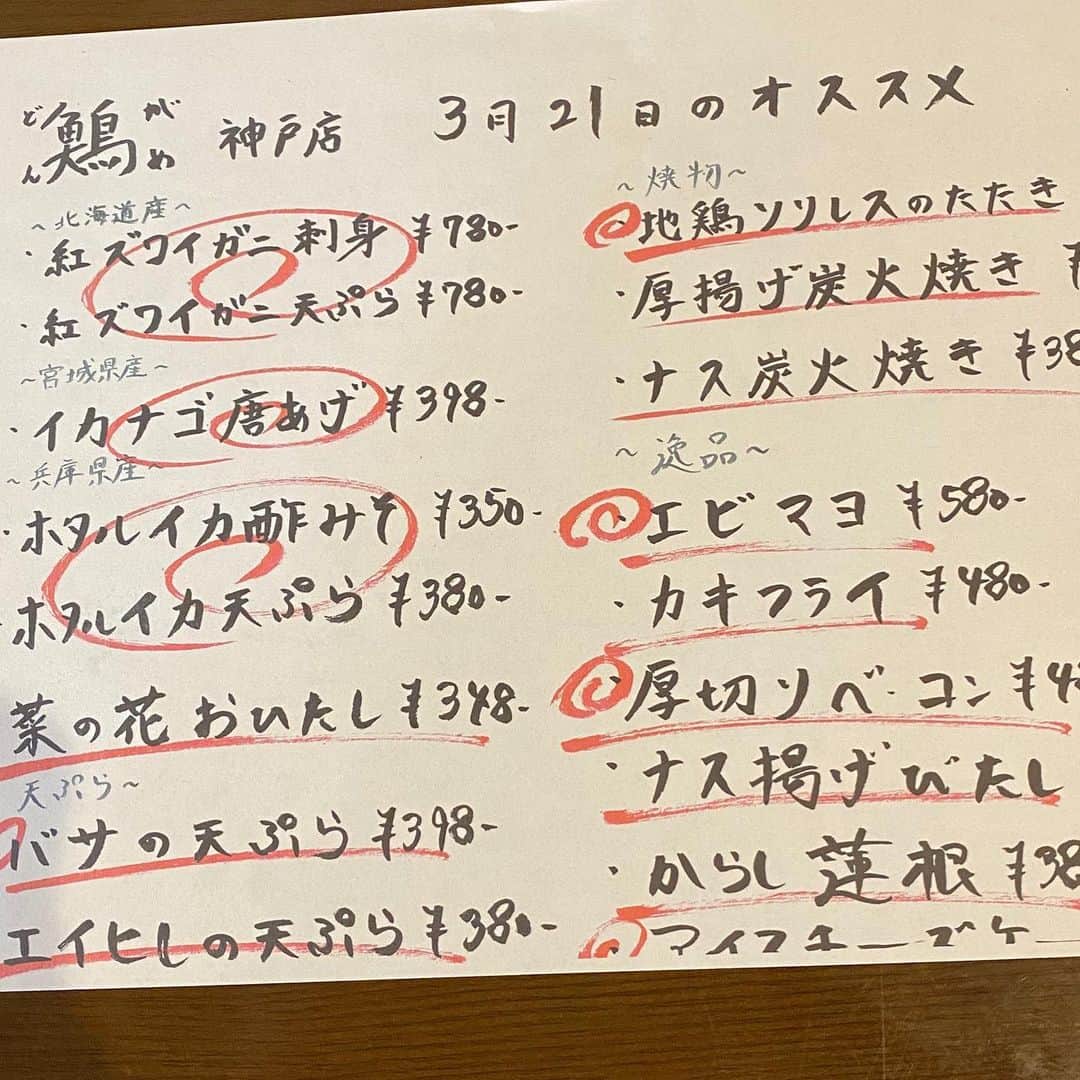 どん 鷏 がめ 神戸店 3月21日のオススメ
~北海道産~
・紅ズワイガニ刺身 ¥780-
・紅ズワイガニ天ぷら ¥780-
~宮城県産~
・イカナゴ唐あげ ¥398-
~兵庫県産~
・ホタルイカ酢みそ ¥350-
・ホタルイカ天ぷら ¥380-
菜の花おひたし ¥348-
天ぷら~
バサの天ぷら ¥398-
エイヒレの天ぷら ¥380-
~焼物~
地鶏ソリレスのたたき
・厚揚げ炭火焼き ¥
・ナス炭火焼き ¥38
~逸品~
・エビマヨ ¥580-
・カキフライ ¥480-
・厚切りベーコン ¥4
・ナス揚げびたし
・からし蓮根 ¥38